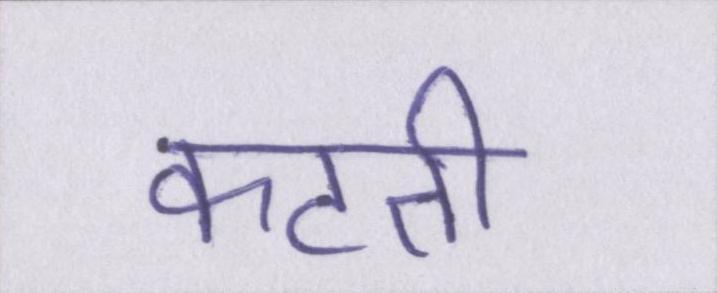 कटती